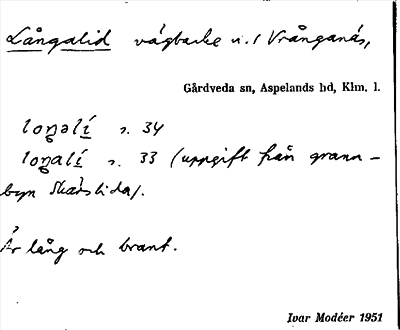 Långalid vägbacke n. / Vrånganäs,
Gårdveda sn, Aspelands hd, Klm. l.
loŋali̱ s. 34
loŋali̱ s. 33 (uppgift från grann-
byn Skärslida).
Är lång och brant.
Ivar Modéer 1951